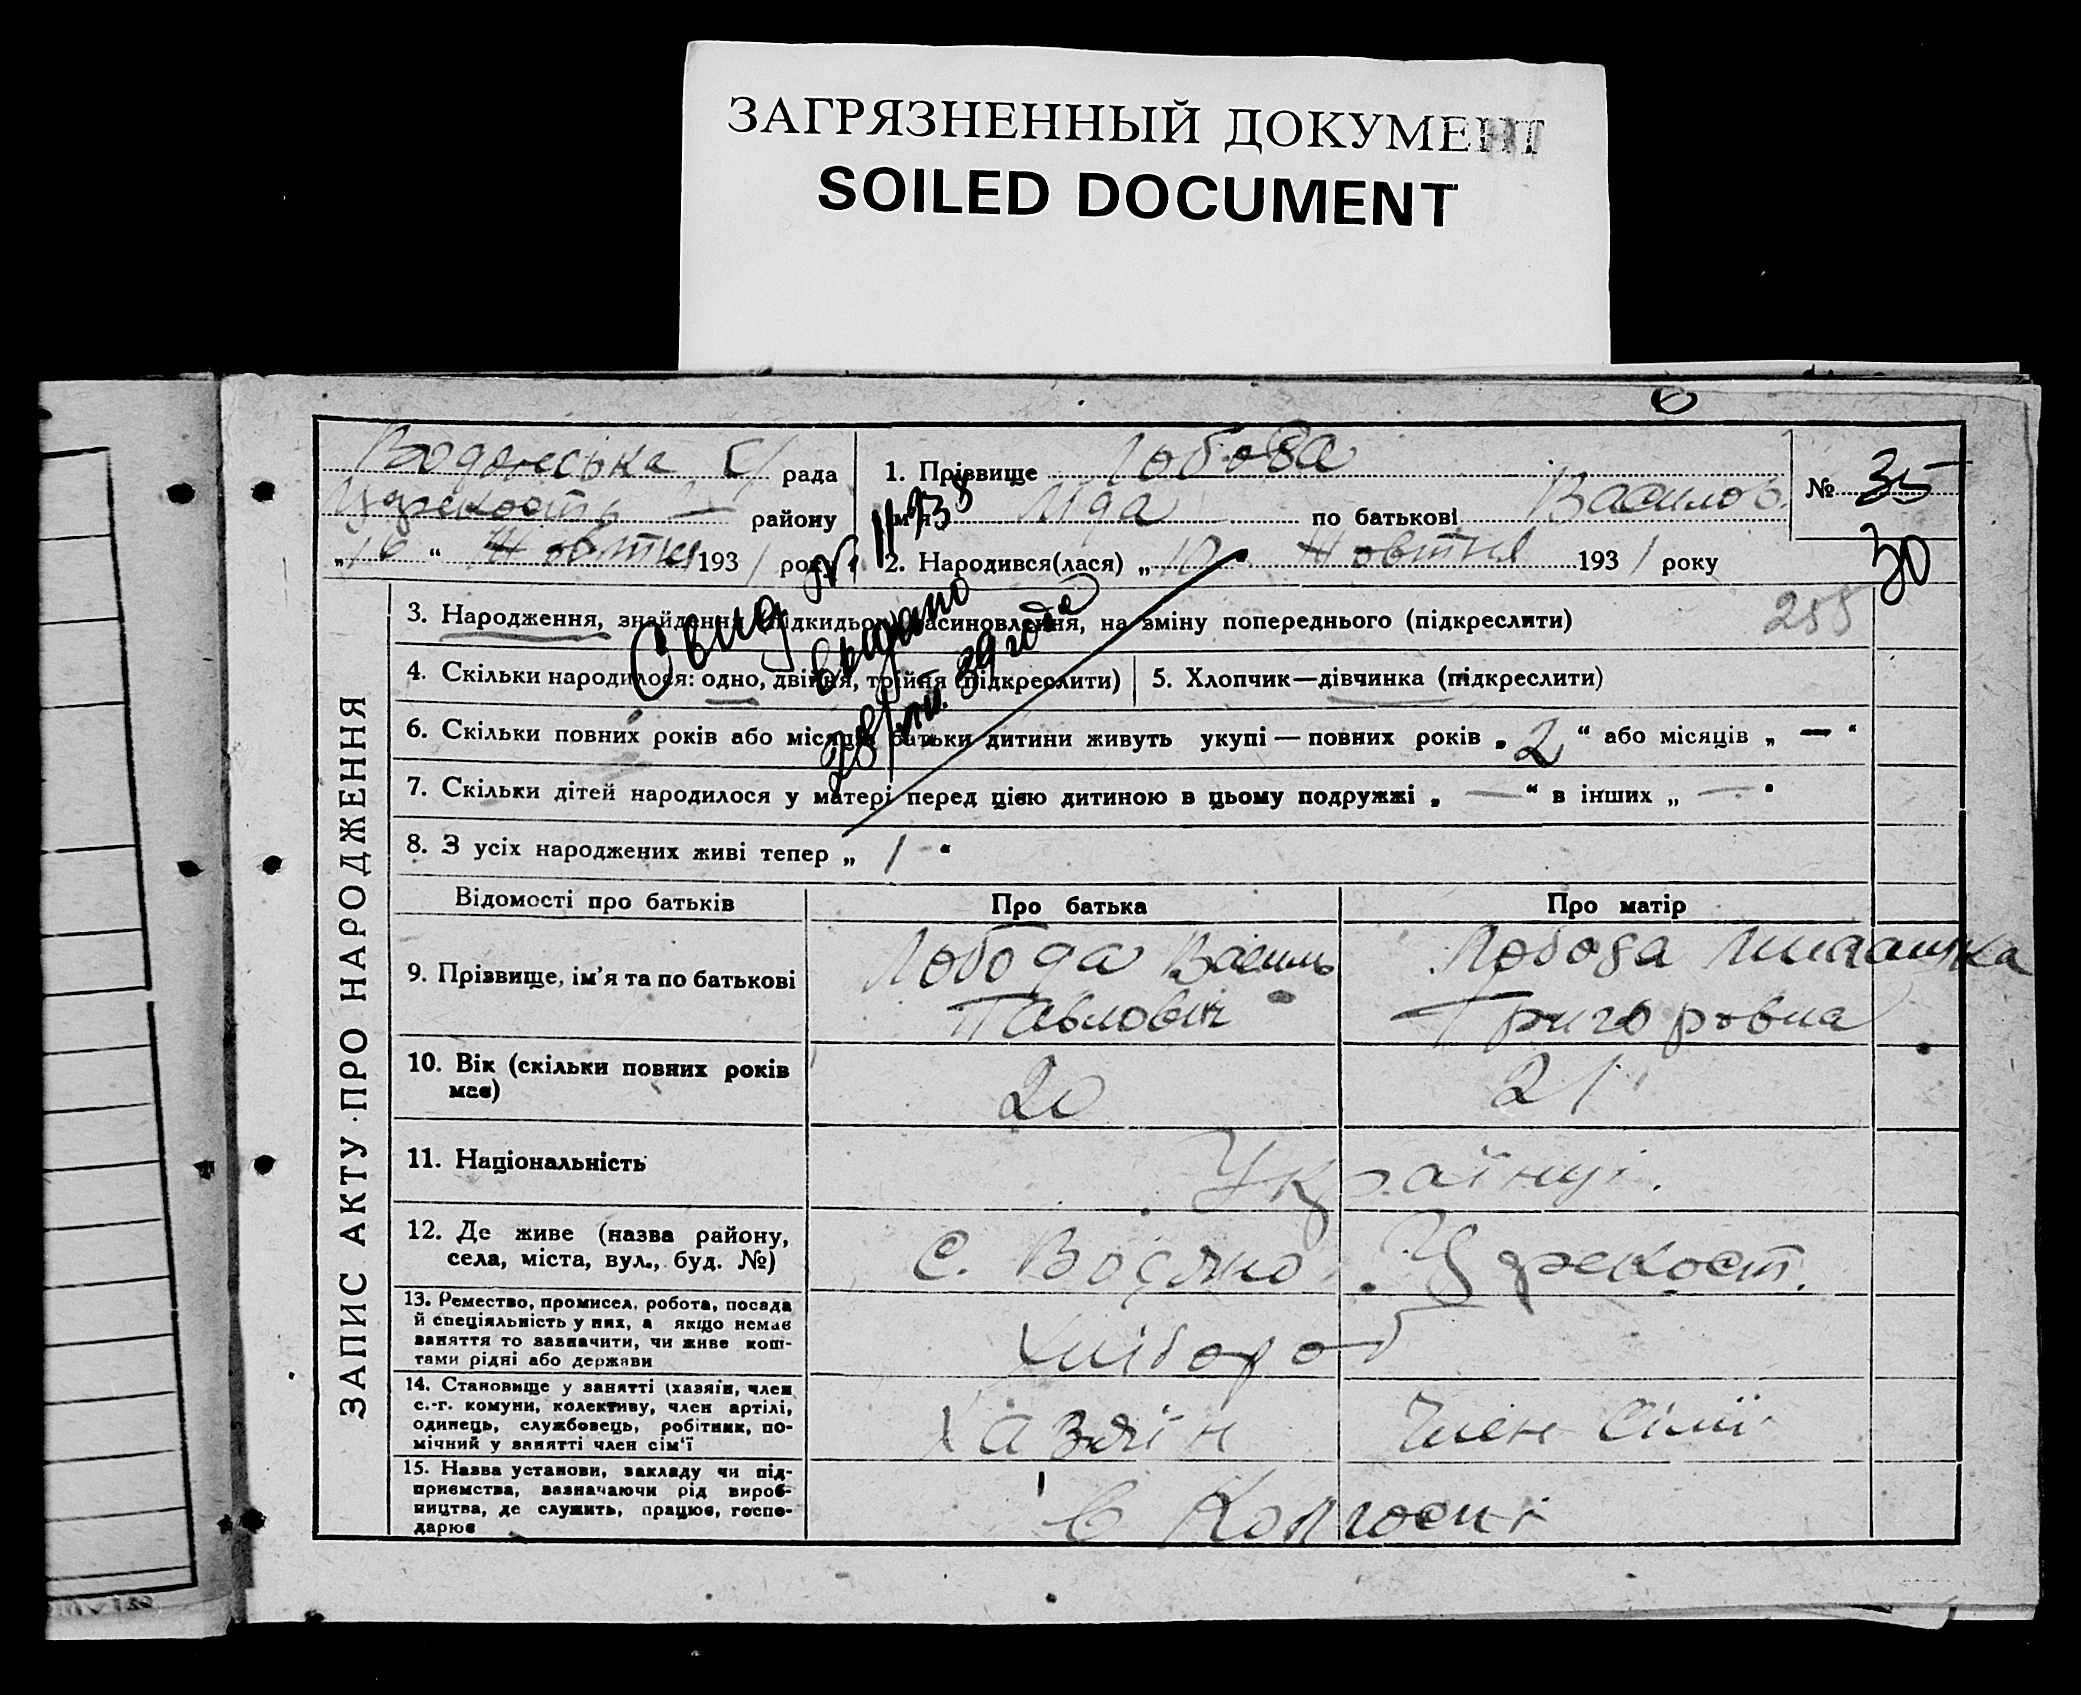 ЗАГРЯЗНЕННЫЙ ДОКУМЕНТ
SOILED DOCUMENT
6
Водянська с/ рада
району
„16“ Жовтня 1931 року
1. Прізвище Лобода
ім'я Ида по батькові Василов.
2. Народився(лася) „10 Жовтня 1931 року
№ 35
30
255
Свид №
11733
выдано
28/ 39 года
ЗАПИС АКТУ ПРО НАРОДЖЕННЯ
3. Народження, знайдення (підкидьок), засиновлення, на зміну попереднього (підкреслити)
4. Скільки народилося: одно, двійня, трійня (підкреслити)
5. Хлопчик—дівчинка (підкреслити)
6. Скільки повних років або місяців батьки дитини живуть укупі — повних років „2“ або місяців „—“
7. Скільки дітей народилося у матері перед цією дитиною в цьому подружжі „—“ в інших „—“
8. З усіх народжених живі тепер „1“
Відомості про батьків
Про батька
Про матір
9. Прізвище, ім'я та по батькові
Лобода Василь
Павлович
Лобода
Григоровна
10. Вік (скільки повних років
має)
20
21
11. Національність
Українці.
12. Де живе (назва району,
села, міста, вул., буд. №)
с. Водяно
13. Ремество, промисел, робота, посада
й спеціяльність у них, а якщо немає
заняття то зазначити, чи живе кош-
тами рідні або держави
Хлібороб
14. Становище у занятті (хазяїн, член
с.-г. комуни, колективу, член артілі,
одинець, службовець, робітник, по-
мічний у занятті член сім'ї
Хазяїн
Член сімї
15. Назва установи, закладу чи під-
приємства, зазначаючи рід вироб-
ництва, де служить, працює, госпо-
дарює
в Колгоспі